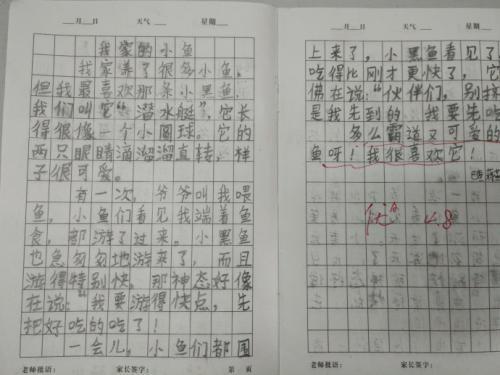 ___月___日 天气___ 星期___
我家的小鱼
我家养了很多小鱼,
但我最喜欢那条小黑鱼,
我们叫它“潜水艇”,它长
得很像一个小圆球。它的
两只眼睛滴溜溜直转,样
子很可爱。
有一次,爷爷叫我喂
鱼,小鱼们看见我端着鱼
食,都游了过来。小黑鱼
也急匆匆地游来了,而且
游得特别快。那神态好像
在说:“我要游得快点,先
把好吃的吃了!
一会儿,小鱼们都围
老师批语: 家长签字: 第 页
___月___日 天气___ 星期___
上来了,小黑鱼看见了
吃得比刚才更快了,它
佛在说:“伙伴们,别挤
是我先到的,我要先吃
多么霸道又可爱的
鱼呀!我很喜欢它!
优 48
老师批语: 家长签字: